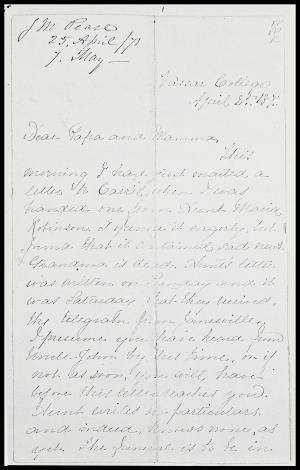 J M Pease
25. April /71
7. May —
Vassar College
April 25. 187
Dear Papa and Mamma,
This
morning I had just mailed a
letter to Carrie, when I was
handed one from Aunt Maria
Johnson. I opened it eagerly, but
found that it contained sad news.
Grandma is dead. Aunt's letter
was written on Sunday and it
was Saturday that they received
the telegram from Janesville.
I presume you have heard from
Uncle John by this time, or if
not as soon, you will, have
before this letter reaches you.
Aunt writes no particulars
and indeed, knows none, as
yet. The funeral is to be in